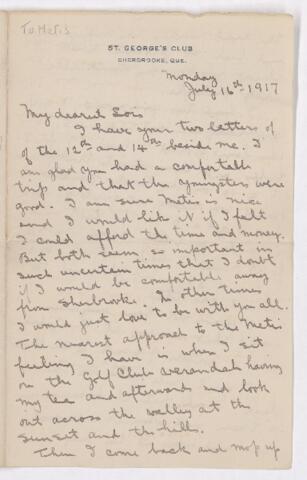 To Metis
ST. GEORGE'S CLUB
SHERBROOKE, QUE.
Monday
July 16th 1917
My dearest Sois
I have your two letters of
of the 12th and 14th beside me. I
am glad you had a comfortable
trip and that the youngsters were
good. I am sure Metis is nice
and I would like it if I felt
I could afford the time and money.
But both seem so important in
such uncertain times that I doubt
if I would be comfortable away
from Sherbrooke. In other times
I would just love to be with you all.
The nearest approach to the Metis
feeling I have is when I sit
on the Golf Club verandah having
my tea and afterwards and look
out across the valley at the
sunset and the hills.
Then I come back and mop up